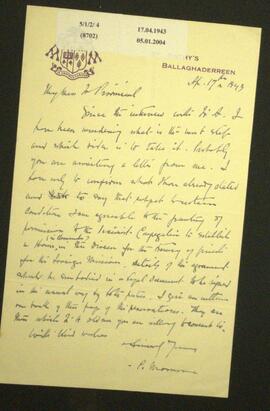 5/1/2/ 4
(8702)
17.04.1943
05.01.2004
Y'S
BALLAGHADERREEN
Ap. 17th 1943
My dear Fr Provincial
Since the interview with Fr. A. I
have been wondering what is the next step
and which side is to take it. Probably
you are awaiting a letter from me. I
have only to confirm what I have already stated
and to say that subject to certain
conditions I am agreeable to the granting of
permission to the Congregation to establish
a House in this Diocese for the training of priests
for the Foreign Missions, details of the agreement
which to be embodied in a legal document to be signed
in the usual way by both parties. I give an outline
on back of this page of the reservations. They are
those which Fr A told me you are willing to consent to.
With kind wishes
Sincerely Yours
P. Morris